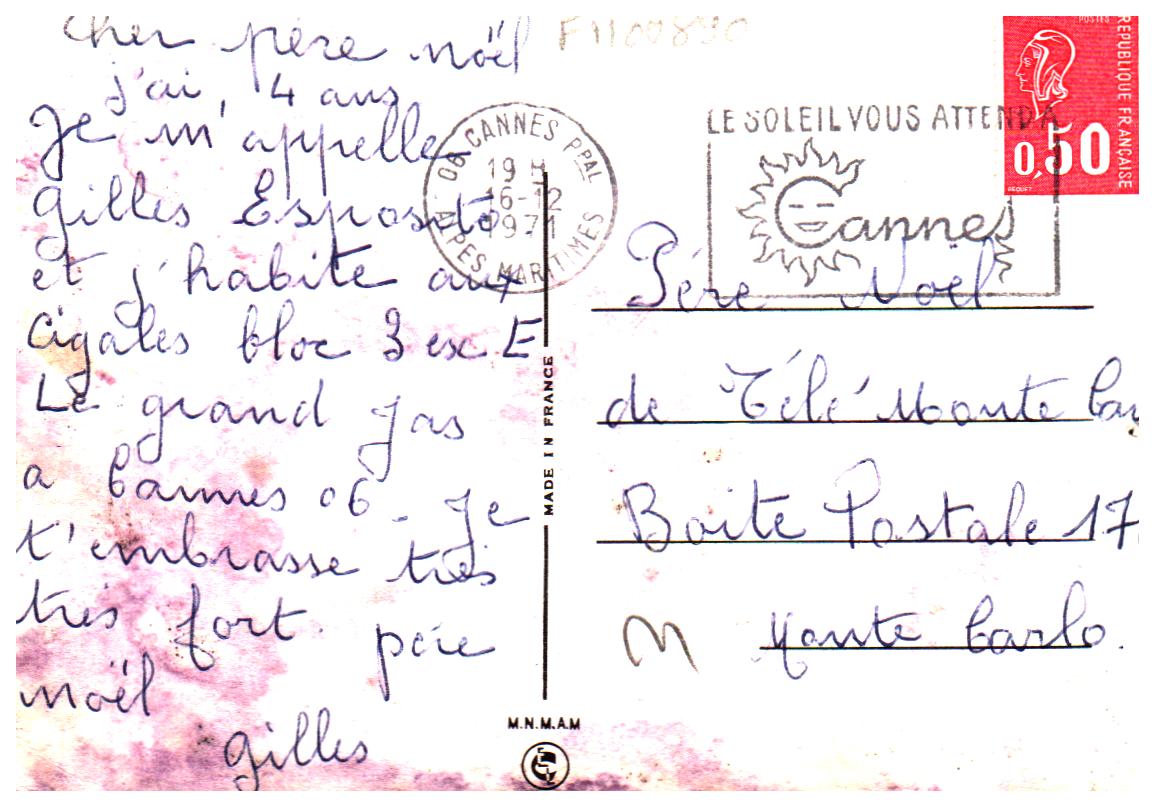 Cher père noël
j'ai, 4 ans
Je m'appelle
Gilles Esposito
et j'habite aux
Cigales bloc 3 esc E
Le grand Jas
a Cannes 06. Je
t'embrasse très
très fort père
noël
Gilles
F1100890
06 CANNES PPAL
19 H
16-12
1971
ALPES MARITIMES
LE SOLEIL VOUS ATTEND A
Cannes
POSTES
REPUBLIQUE FRANÇAISE
0,50
BEQUET
MADE IN FRANCE
Père Noël
de Télé Monte Car
Boite Postale 17
Monte Carlo.
M.N.M.A.M